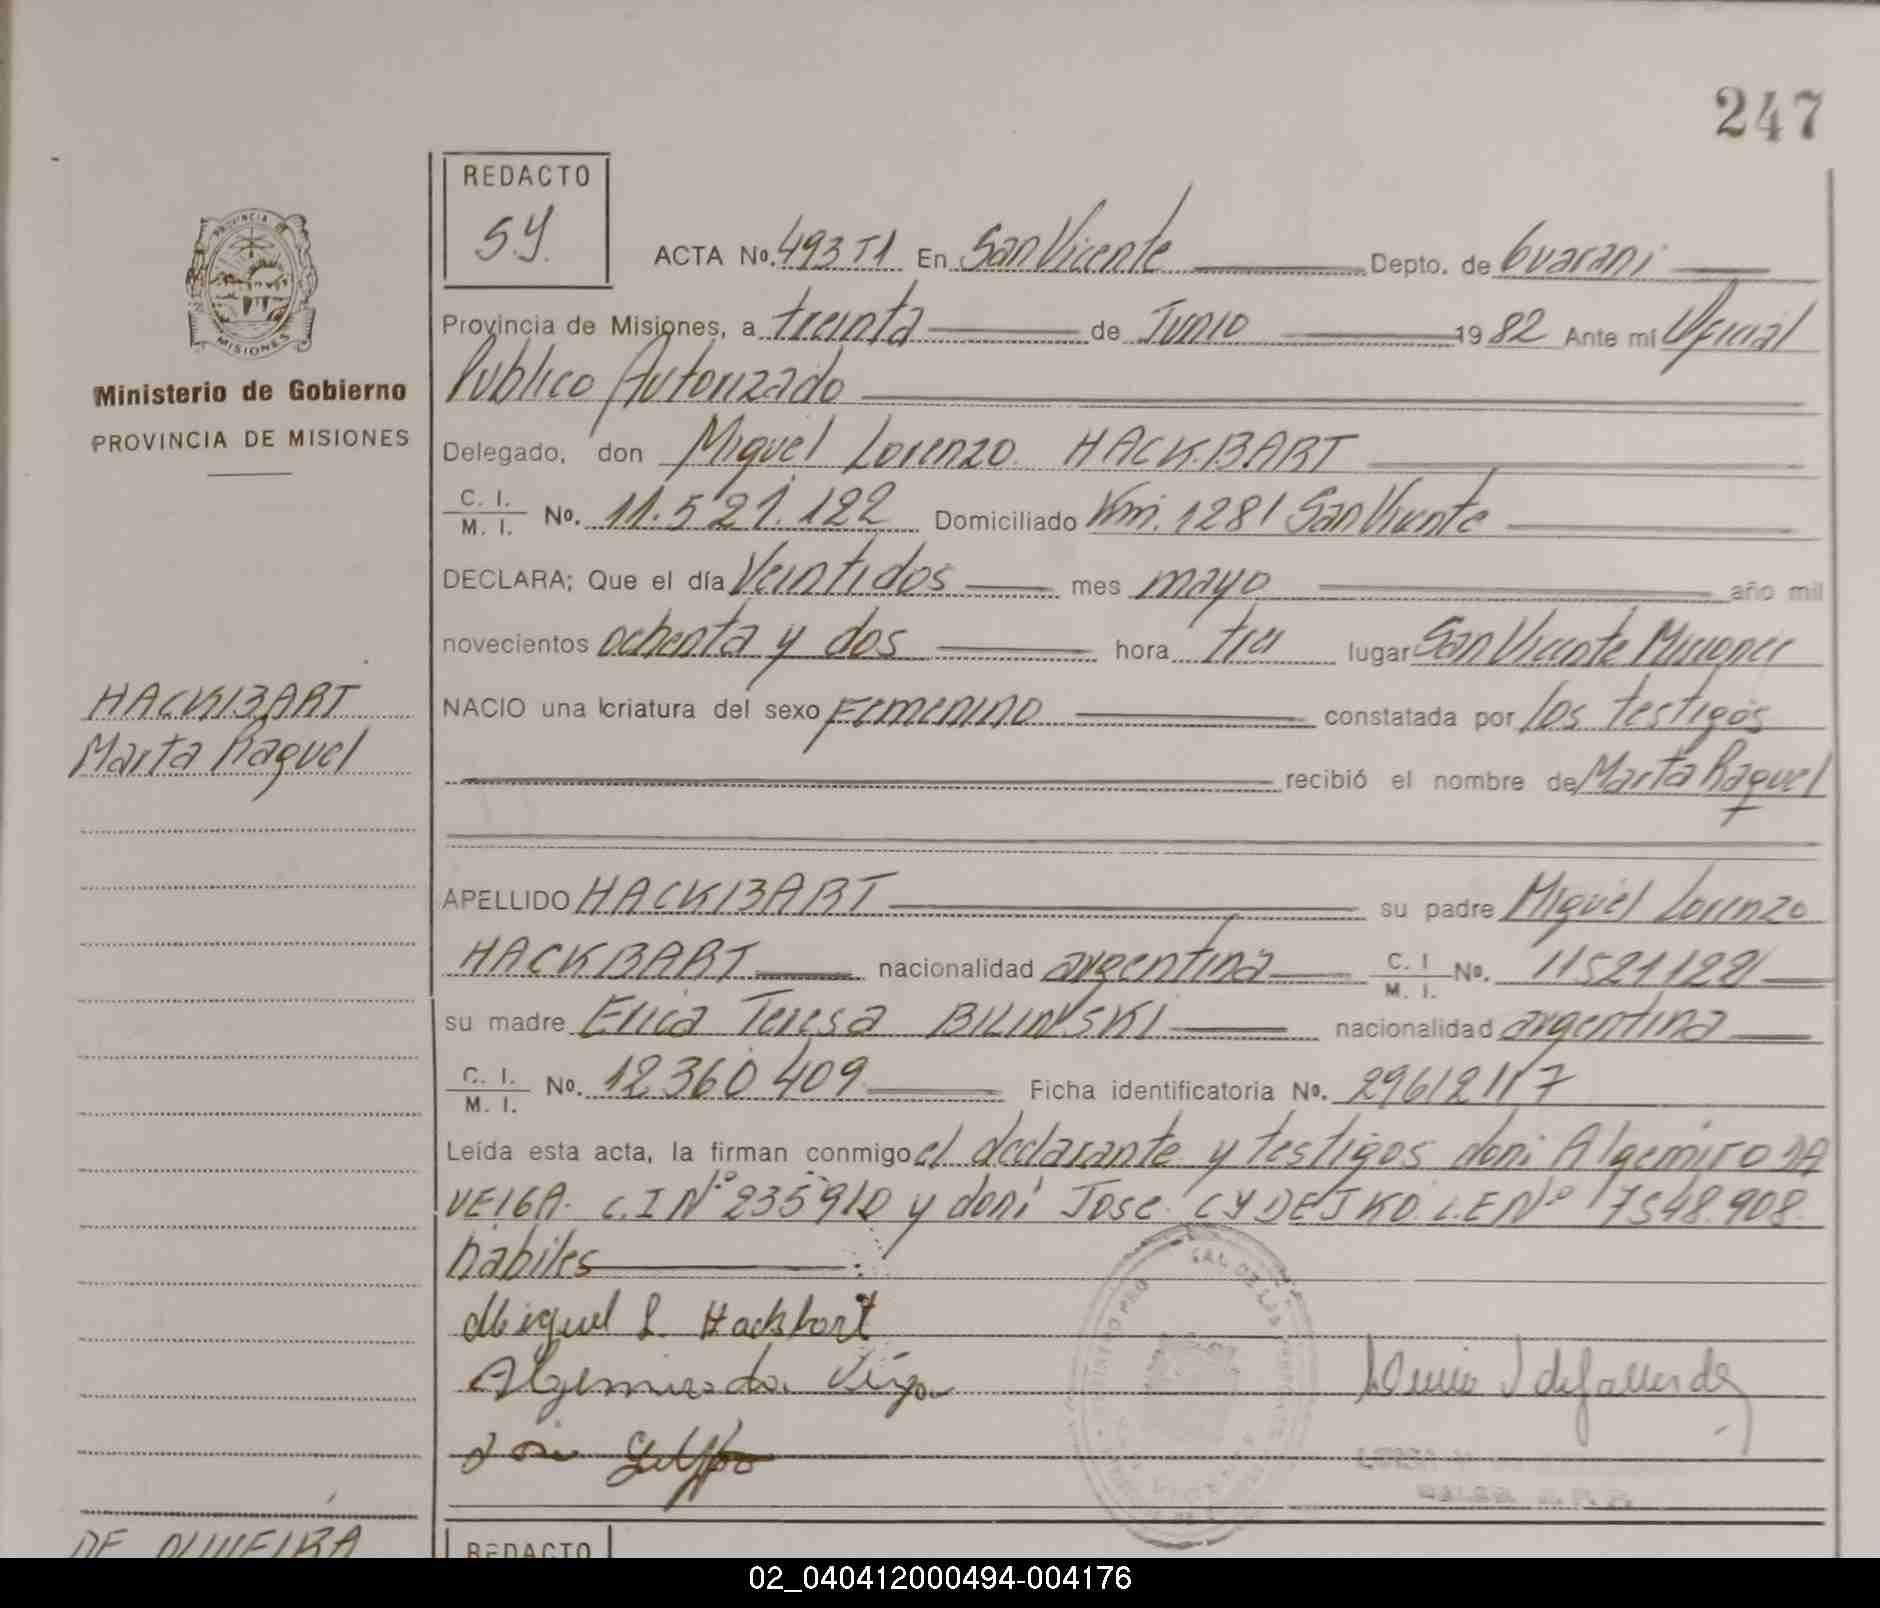 247
REDACTO
S.Y.
ACTA No. 493 T1 En San Vicente Depto. de Guarani
Provincia de Misiones, a treinta de Junio 1982 Ante mí Oficial
Publico Autorizado
Delegado, don Miguel Lorenzo HACKBART
C. I. M. I. No. 11.521.122 Domiciliado Km. 1281 San Vicente
DECLARA; Que el día Veintidos mes mayo año mil
novecientos ochenta y dos hora tres lugar San Vicente Misiones
NACIO una criatura del sexo Femenino constatada por los testigos
recibió el nombre de Marta Raquel
APELLIDO HACKBART su padre Miguel Lorenzo
HACKBART nacionalidad argentina C. I M. I. No.
su madre Erica Teresa BILINSKI nacionalidad argentina
C. I. M. I. No. 12.360.409 Ficha identificatoria No.
Leída esta acta, la firman conmigo el declarante y testigos don: Algemiro DA
VEIGA. C.I Nº 235910 y don: Jose CYDEJKO L.E Nº 7548.908.
habiles
Miguel L. Hackbart
Algemiro da Veiga
PROVINCIA DE
MISIONES
Ministerio de Gobierno
PROVINCIA DE MISIONES
HACKBART
Marta Raquel
DE OLIVEIRA
REDACTO
02_040412000494-004176